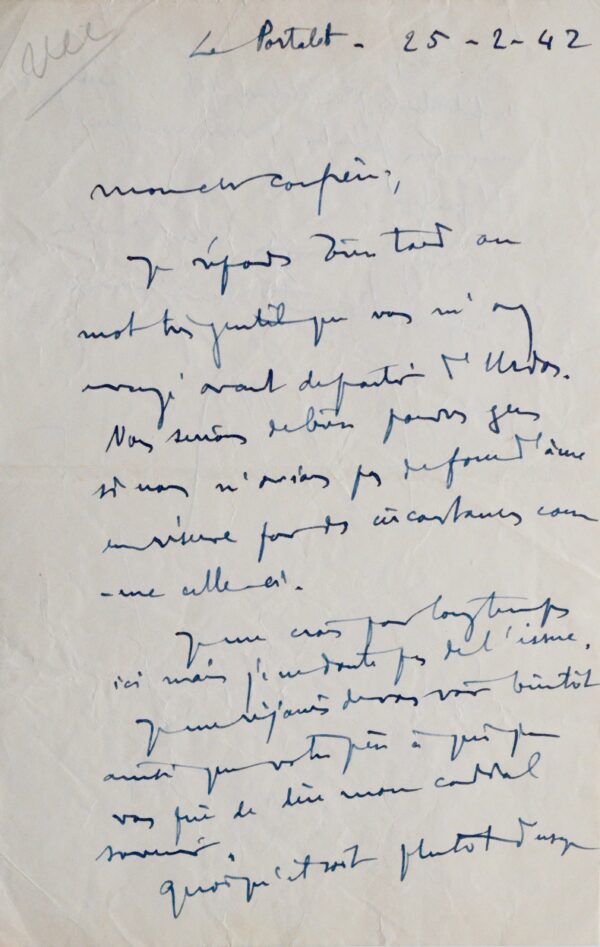 Le Portalet - 25-2-42
mon cher confrère,
je réponds bien tard au
mot très gentil que vous m'avez
envoyé avant de partir d'Urdos.
Nous serions de bien pauvres gens
si nous n'avions pas de force d'âme
en réserve pour des circonstances com
-me celle-ci.
je ne crois pas longtemps
ici mais je ne doute pas de l'issue.
je me réjouis de vous voir bientôt
ainsi que votre père à qui je
vous prie de dire mon cordial
souvenir.
Quoiqu'il soit plutôt d'usage